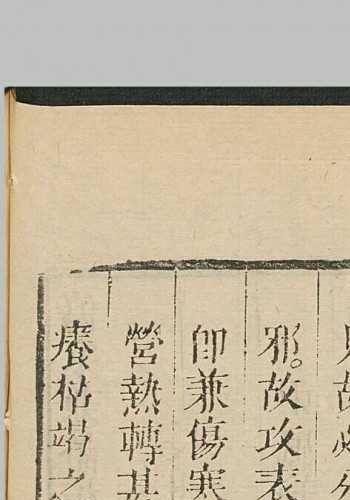 故必
邪。故攻表
即兼傷寒
營熱轉甚
癢枯竭之